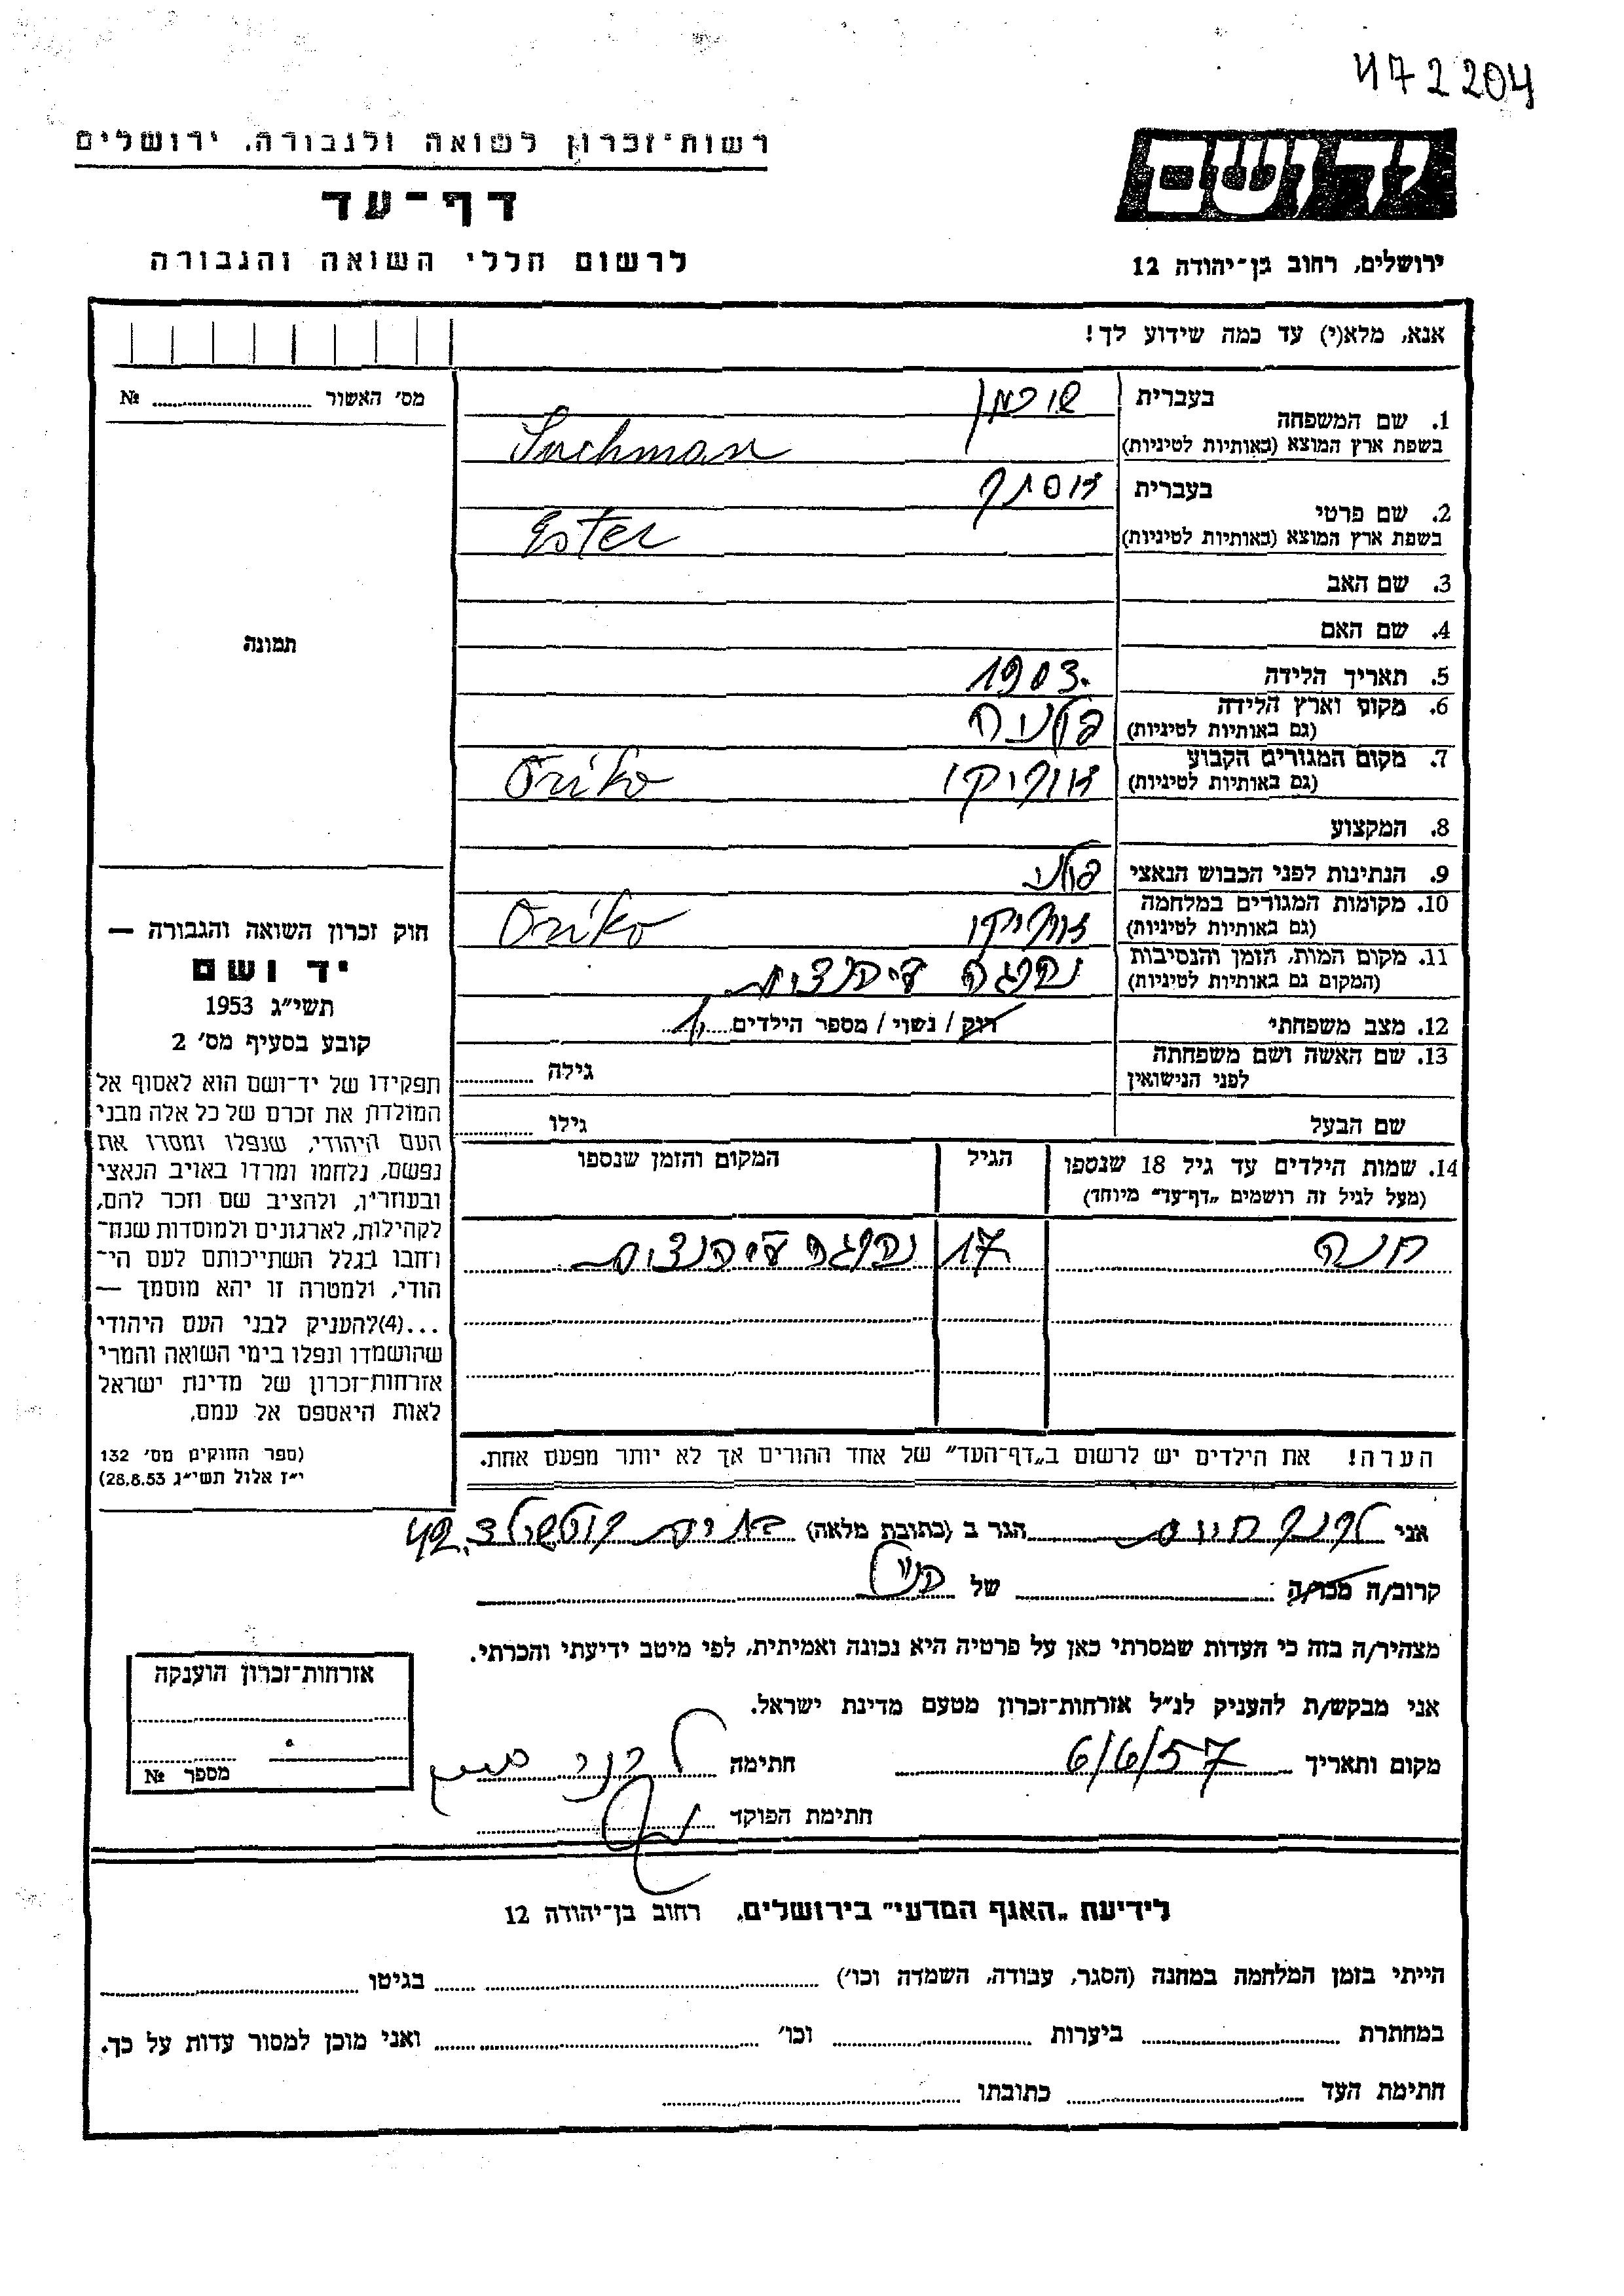 472204
רשות־זכרון לשואה ולגבורה, ירושלים
דף־עד
לרשום חללי השואה והגבורה
ידושם
ירושלים, רחוב בן־יהודה 12
אנא, מלא(י) עד כמה שידוע לך!
מס׳ האשור № 
1. שם המשפחה בעברית שוכמן
בשפת ארץ המוצא (באותיות לטיניות) Suchman
2. שם פרטי בעברית אסתר
בשפת ארץ המוצא (באותיות לטיניות) Ester
3. שם האב
4. שם האם
תמונה
5. תאריך הלידה 1903.
6. מקום וארץ הלידה
(גם באותיות לטיניות) פולניה
7. מקום המגורים הקבוע
(גם באותיות לטיניות) אוזיקו Oziko
8. המקצוע
9. הנתינות לפני הכבוש הנאצי פולני
10. מקומות המגורים במלחמה
(גם באותיות לטיניות) Oziko
11. מקום המות, הזמן והנסיבות
(המקום גם באותיות לטיניות) נהרגה ע״י הנאצים
12. מצב משפחתי רוק / נשוי / מספר הילדים 1
13. שם האשה ושם משפחתה
לפני הנישואין גילה
שם הבעל גילו
14. שמות הילדים עד גיל 18 שנספו הגיל המקום והזמן שנספו
(מעל לגיל זה רושמים „דף־עד״ מיוחד)
חנה 17 נהרגה ע״י הנאצים
הערה! את הילדים יש לרשום ב„דף־העד״ של אחד ההורים אך לא יותר מפעם אחת.
חוק זכרון השואה והגבורה —
יד ושם
תשי״ג 1953
קובע בסעיף מס׳ 2
תפקידו של יד־ושם הוא לאסוף אל
המולדת את זכרם של כל אלה מבני
העם היהודי, שנפלו ומסרו את
נפשם, נלחמו ומרדו באויב הנאצי
ובעוזריו, ולהציב שם וזכר להם,
לקהילות, לארגונים ולמוסדות שנח־
רחבו בגלל השתייכותם לעם הי־
הודי, ולמטרה זו יהא מוסמך —
...(4)להעניק לבני העם היהודי
שהושמדו ונפלו בימי השואה והמרי
אזרחות־זכרון של מדינת ישראל
לאות היאספם אל עמם.
(ספר החוקים מס׳ 132
י״ז אלול תשי״ג 28.8.53)
אני חיים הגר ב (כתובת מלאה)
קרוב/ה מכר/ה של
מצהיר/ה בזה כי העדות שמסרתי כאן על פרטיה היא נכונה ואמיתית, לפי מיטב ידיעתי והכרתי.
אני מבקש/ת להעניק לנ״ל אזרחות־זכרון מטעם מדינת ישראל.
מקום ותאריך 6/6/57 חתימה
חתימת הפוקד
אזרחות־זכרון הוענקה
מספר №
לידיעת „האגף המדעי״ בירושלים, רחוב בן־יהודה 12
הייתי בזמן המלחמה במחנה (הסגר, עבודה, השמדה וכו׳) בגיטו
במחתרת ביערות וכו׳ ואני מוכן למסור עדות על כך.
חתימת העד כתובתו